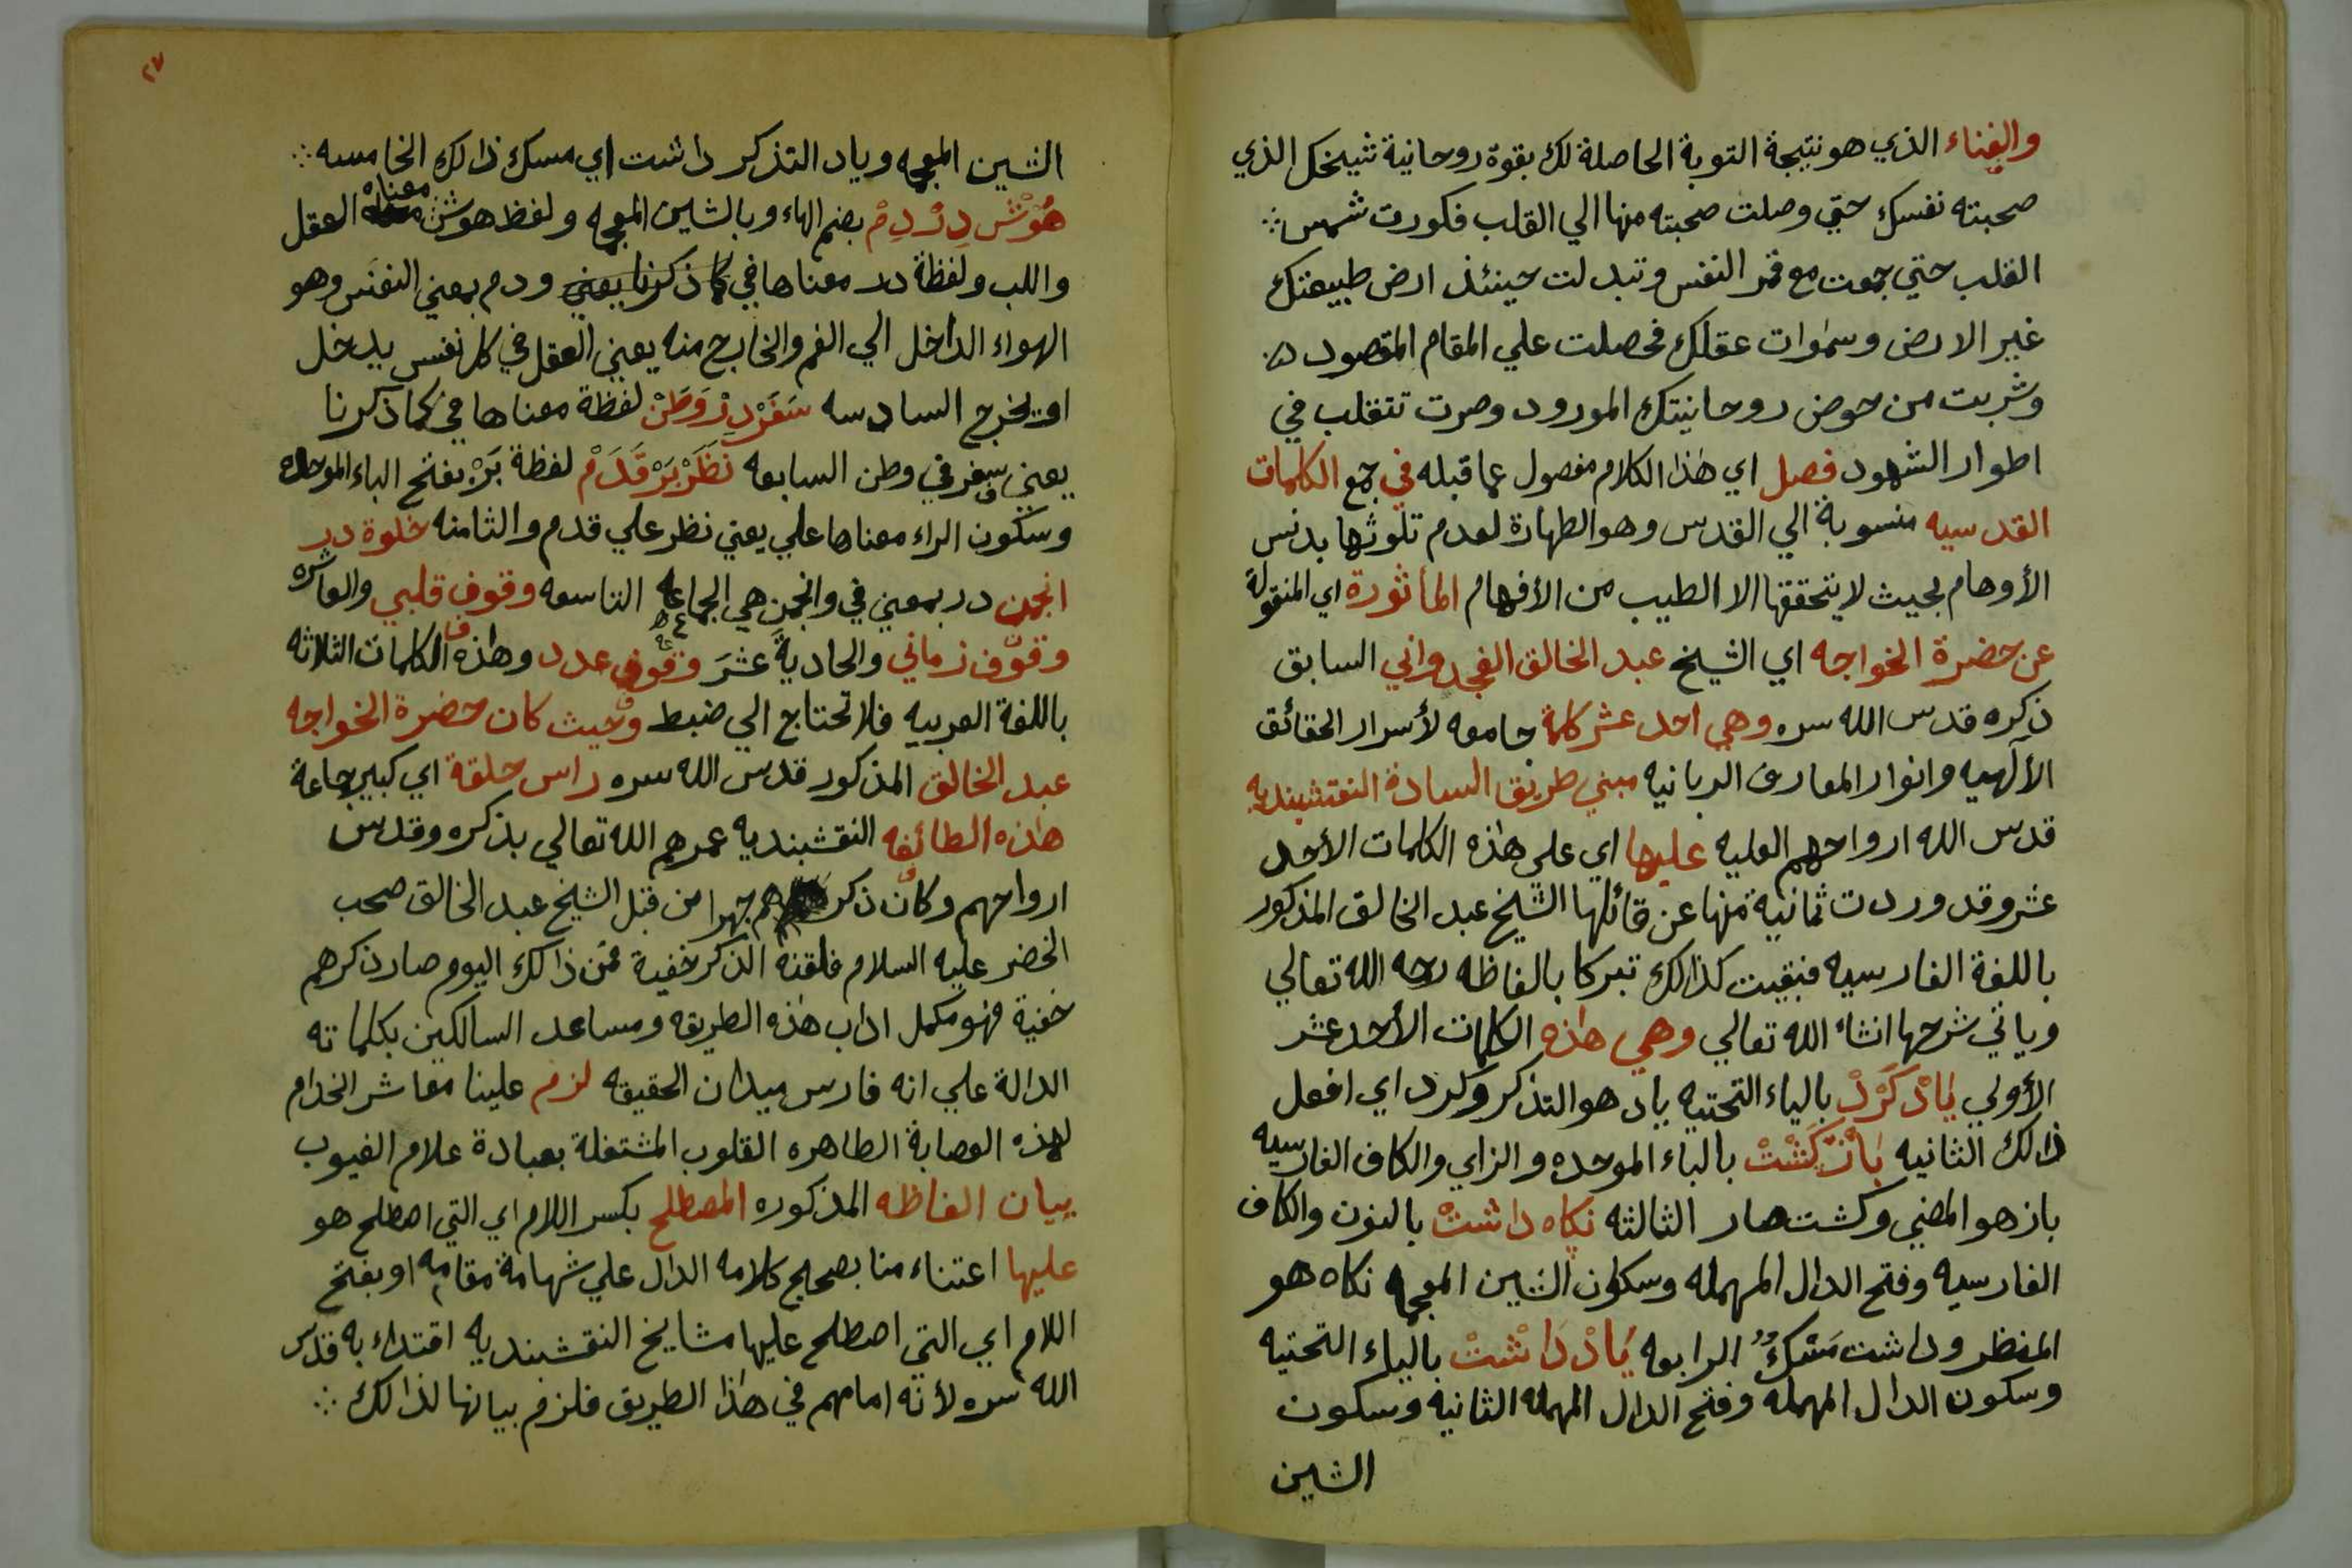 والفناء الذي هو نتيجة التوبة الحاصلة لك بقوة روحانية شيخك الذي
صحبته نفسك حتي وصلت صحبته منها الي القلب فكورت شمس
القلب حتي جمعت مع قمر النفس وتبدلت حينئذ ارض طبيعتك
غير الارض وسموات عقلك فحصلت علي المقام المقصود
وشربت من حوض روحانيتك المورود وصرت تتقلب في
اطوار الشهود فصل اي هذا الكلام مفصول عما قبله في جمع الكلمات
القدسيه منسوبة الي القدس وهو الطهارة لعدم تلوثها بدنس
الأوهام بحيث لا يتحققها الا الطيب من الأفهام المأثورة اي المنقولة
عن حضرة الخواجه اي الشيخ عبد الخالق الغجدواني السابق
ذكره قدس الله سره وهي احد عشر كلمة جامعه لأسرار الحقائق
الألهيه وانوار المعارف الربانيه مبني طريق السادة النقشبنديه
قدس الله ارواحهم العليه عليها اي علي هذه الكلمات الأحد
عشر وقد وردت ثمانية منها عن قائلها الشيخ عبد الخالق المذكور
باللغة الفارسيه فبقيت كذالك تبركا بالفاظه رحمه الله تعالي
وياتي شرحها انشاء الله تعالي وهي هذه الكلمات الأحد عشر
الأولي يَادْ كَرْدْ بالياء التحتيه ياد هو التذكر وكرد اي افعل
ذالك الثانيه بَازْ كَشْتْ بالباء الموحده والزاي والكاف الفارسيه
باز هو المضي وكشت صار الثالثه نكاه داشتْ بالنون والكاف
الفارسيه وفتح الدال المهمله وسكون الشين المعجمه نكاه هو
المنظر وداشت مسك الرابعه يَادْ دَاشتْ بالياء التحتيه
وسكون الدال المهمله وفتح الدال المهمله الثانيه وسكون
الشين
٢٧
الشين المعجمه وياد التذكر داشت اي مسك ذالك الخامسه
هُوْشْ دِرْ دِمْ بضم الهاء وبالشين المعجمه ولفظ هوش معناه العقل
واللب ولفظة در معناها في كما ذكرنا يعني ودم بمعني النفَس وهو
الهواء الداخل الي الفم والخارج منه يعني العقل في كل نفس يدخل
او يخرج السادسه سَفَرْ دِرْ وَطَنْ لفظة معناها في كما ذكرنا
يعني سفر في وطن السابعه نَظَرْ بَرْ قَدَمْ لفظة بَرْ بفتح الباء الموحده
وسكون الراء معناها علي يعني نظر علي قدم والثامنه خلوة در
انجمن در بمعني في وانجمن هي الجماعه التاسعه وقوف قلبي والعاشره
وقوف زماني والحادية عشرَ وقوف عدد وهذه الكلمات الثلاثه
باللغة العربيه فلا تحتاج الي ضبط وحيث كان حضرة الخواجه
عبد الخالق المذكور قدس الله سره راس حلقة اي كبير جماعة
هذه الطائفه النقشبنديه عمرهم الله تعالي بذكره وقدس
ارواحهم وكان ذكرهم جهرا من قبل الشيخ عبد الخالق صحب
الخضر عليه السلام فلقنه الذكر خفية فمن ذالك اليوم صار ذكرهم
خفية فهو مكمل اداب هذه الطريقه ومساعد السالكين بكلماته
الدالة علي انه فارس ميدان الحقيقه لزم علينا معاشر الخدام
لهذه العصابة الطاهره القلوب المشتغلة بعبادة علام الغيوب
بيان الفاظه المذكوره المصطلح بكسر اللام اي التي اصطلح هو
عليها اعتناء منا بصحيح كلامه الدال علي شهامة مقامه او بفتح
اللام اي التي اصطلح عليها مشايخ النقشبنديه اقتداء به قدس
الله سره لأنه امامهم في هذا الطريق فلزم بيانها لذالك